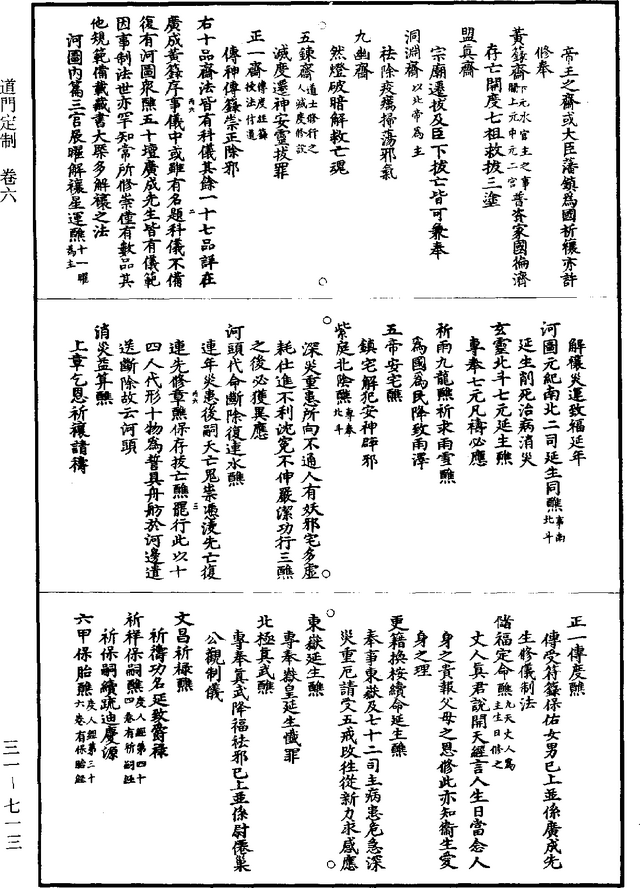 道門定制　卷六
三一－七一三
帝王之齋或大臣藩鎮爲國祈禳亦許
修奉
黃籙齋下元水官主之事關上元中元二宮普資家國徧濟
存亡開度七祖救拔三塗
盟真齋
宗廟遷拔及臣下拔亡皆可兼奉
洞淵齋以北帝爲主
祛除疫癘掃蕩邪氣
九幽齋
然燈破暗解救亡魂
五鍊齋道士修行之人滅度修設
滅度遷神安靈拔罪
正一齋傳度經籙授法付道
傳神傳籙崇正除邪
右十品齋法皆有科儀其餘一十七品詳在
廣成黃籙序事儀中或雖有名題科儀不備
復有河圖衆醮五十壇廣成先生皆有儀範
因事制法世亦罕知常所修崇僅有數品其
他規範備載藏書大槩多解禳之法
河圖內篇三官展曜解禳星運醮十一曜爲主
解禳災運致福延年
河圖元紀南北二司延生同醮事南北斗
延生削死治病消災
玄靈北斗七元延生醮
專奉七元凡禱必應
祈雨九龍醮祈求雨雪醮
爲國爲民降致雨澤
五帝安宅醮
鎮宅解犯安神辟邪
紫庭北陰醮專奉北斗
深災重患所向不通人有妖邪宅多虛
耗仕進不利沈寃不伸嚴潔功行三醮
之後必獲異應
河頭代命斷除復連水醮
連年災患後嗣夭亡鬼祟憑淩先亡復
連先修章醮保存拔亡醮罷行此以十
四人代形十物爲普具舟舫於河邊遣
送斷除故云河頭
消災益算醮
上章乞恩祈禳請禱
正一傳度醮
傳受符籙保佑女男已上並係廣成先
生修儀制法
儲福定命醮九天丈人爲主生日修之
丈人真君說開天經言人生日當念人
身之貴報父母之恩修此亦知衛生愛
身之理
更籍換桉續命延生醮
奏事東嶽及七十二司主病患危急深
災重厄請受五戒改徃從新力求感應
東嶽延生醮
專奉嶽皇延生懺罪
北極真武醮
專奉真武降福祛邪已上並係尉僊巢
公觀制儀
文昌祈祿醮
祈禱功名延致爵祿
祈祥保嗣醮度人經第四十四卷有祈嗣經
祈保嗣續䟽迪慶源
六甲保胎醮度人經第三十六卷有保胎經